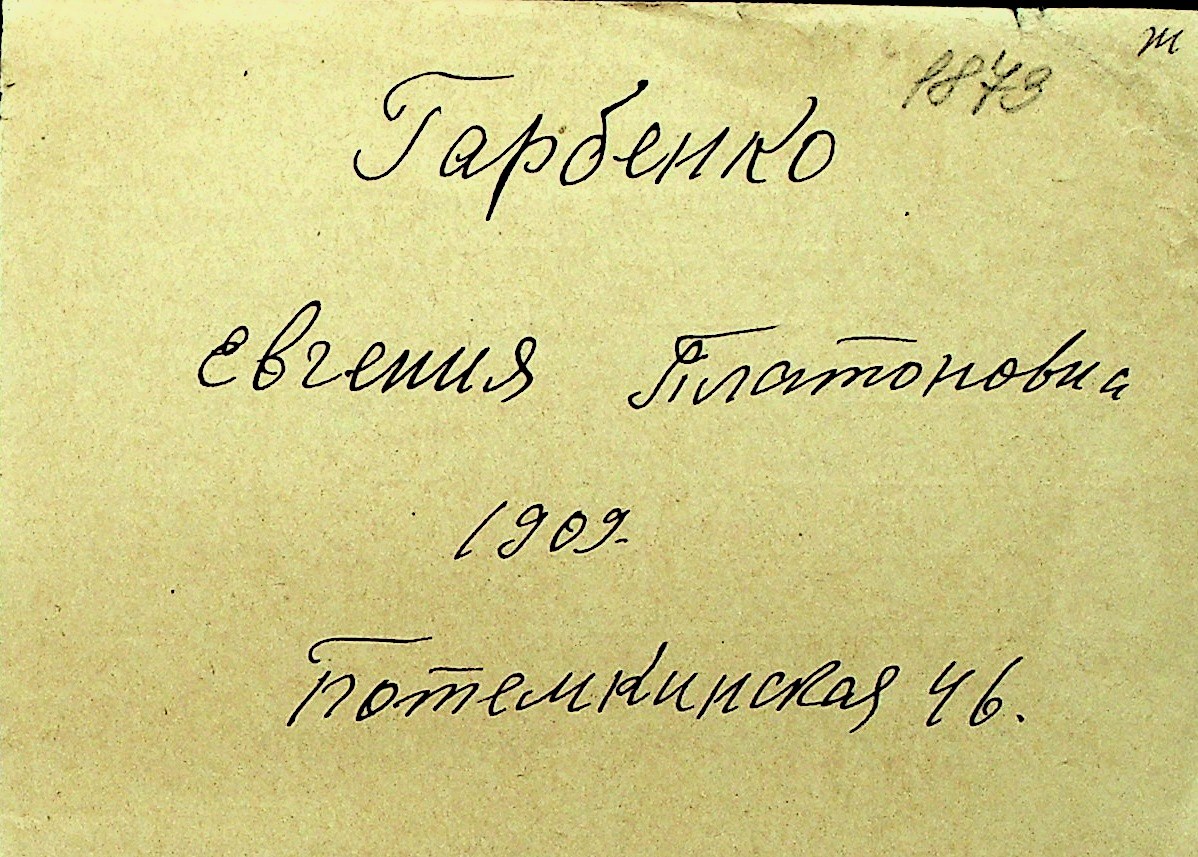 ж
1879
Гарбенко
Евгения Платоновна
1909.
Потемкинская 46.